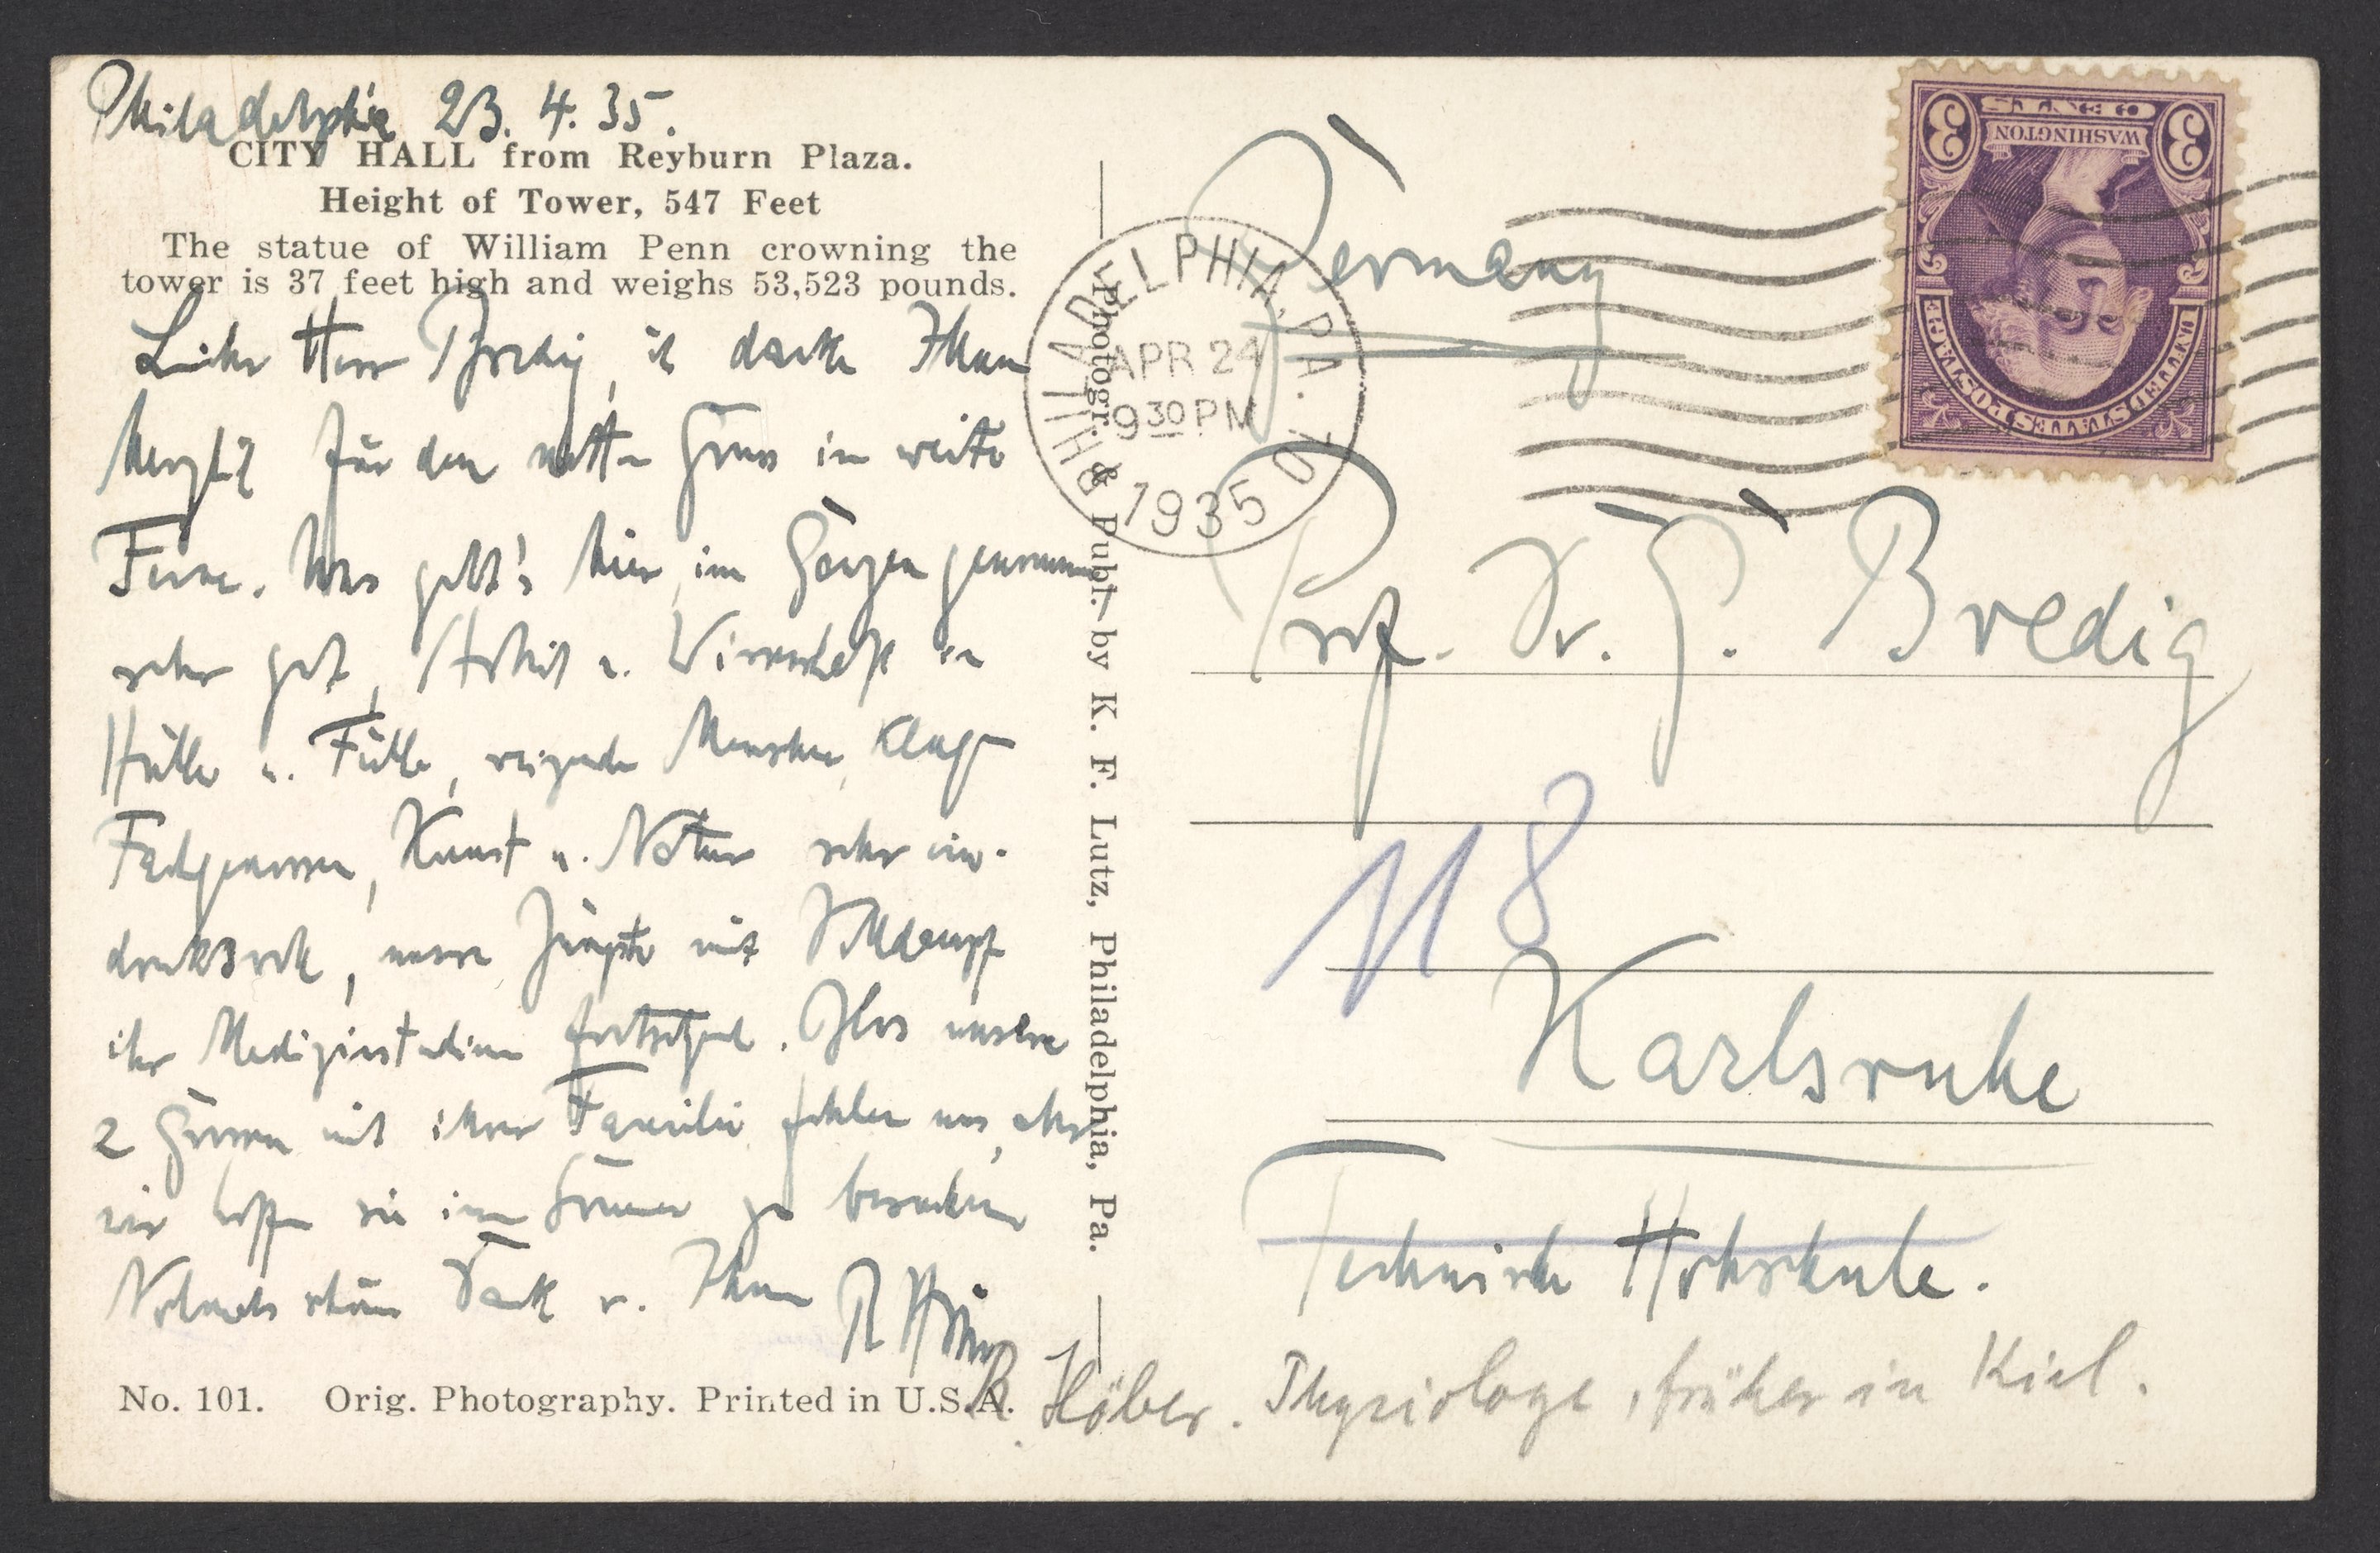 Philadelphia 23. 4. 35.
CITY HALL from Reyburn Plaza.
Height of Tower, 547 Feet
The statue of William Penn crowning the
tower is 37 feet high and weighs 53,523 pounds.
Lieber Herr Bredig, ich danke Ihnen
herzlich für den netten Gruss in weite
Ferne. Uns geht's hier im Ganzen genommen
sehr gut, Arbeit u. Wissenschaft in
Hülle u. Fülle, reizende Menschen, kluge
Fachgenossen, Kunst u. Natur sehr ein-
drucksvoll, unsre Jüngste mit Volldampf
ihr Medizinstudium fortsetzend. Blos unsere
2 Grossen mit ihrer Familie fehlen uns, aber
wir hoffen sie im Sommer zu besuchen
Nochmals schönen Dank v. Ihrem R Höber
No. 101. Orig. Photography. Printed in U.S.A.
Photogr. & Publ. by K. F. Lutz, Philadelphia, Pa.
PHILADELPHIA, PA.
APR 24
9 30 PM
1935
WASHINGTON
3 3
UNITED STATES POSTAGE
Germany
Prof. Dr. G. Bredig
118
Karlsruhe
Technische Hochschule.
R. Höber. Physiologe, früher in Kiel.